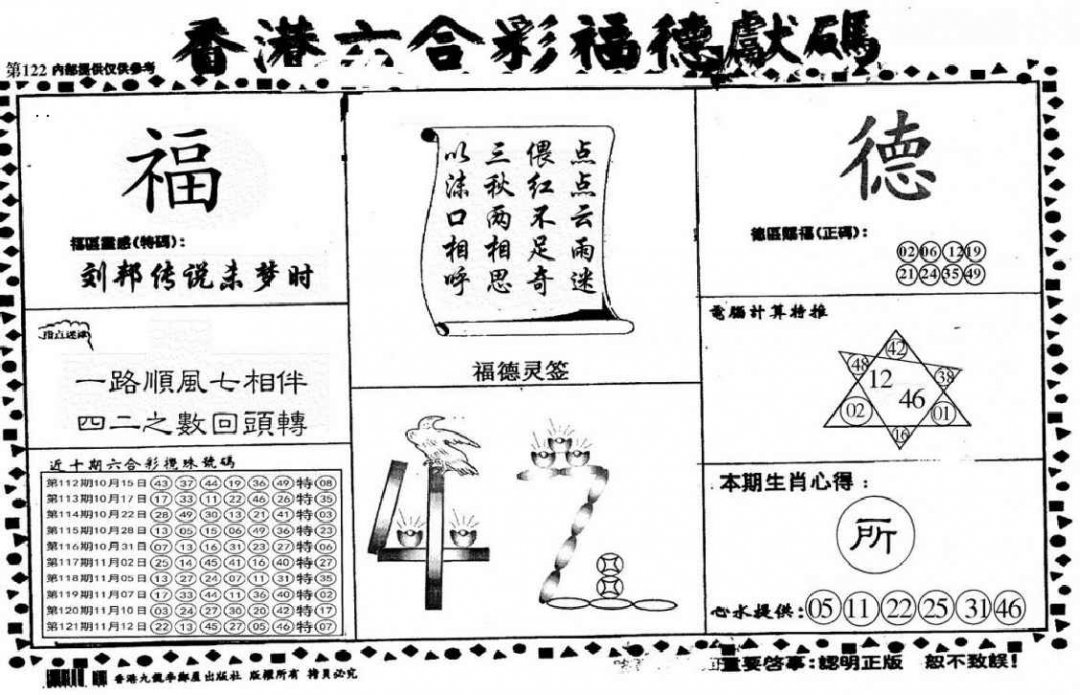 香港六合彩福德獻碼
第122 內部提供仅供參考
福
福區靈感(特碼):
刘邦传说未梦时
指点迷津
一路順風七相伴
四二之數回頭轉
近十期六合彩攪珠號碼
第112期10月15日 43 37 44 19 36 49 特 08
第113期10月17日 17 33 11 22 46 26 特 35
第114期10月22日 28 49 30 13 21 41 特 03
第115期10月28日 13 05 15 06 49 36 特 23
第116期10月31日 07 13 16 31 23 27 特 06
第117期11月02日 25 14 45 41 16 40 特 27
第118期11月05日 13 27 24 07 11 31 特 35
第119期11月07日 17 33 44 11 36 40 特 02
第120期11月10日 03 24 27 30 20 42 特 17
第121期11月12日 22 13 45 27 05 46 特 07
点点云雨迷
偎红不足奇
三秋两相思
以沫口相呼
福德灵签
42
德
德區賜福(正碼):
02 06 12 19
21 24 35 49
電腦計算特推
42
48 38
12 46
02 01
16
本期生肖心得:
所
心水提供: 05 11 22 25 31 46
香港九龍 出版社 版權所有 拷貝必究
重要啓事:認明正版 恕不致誤!